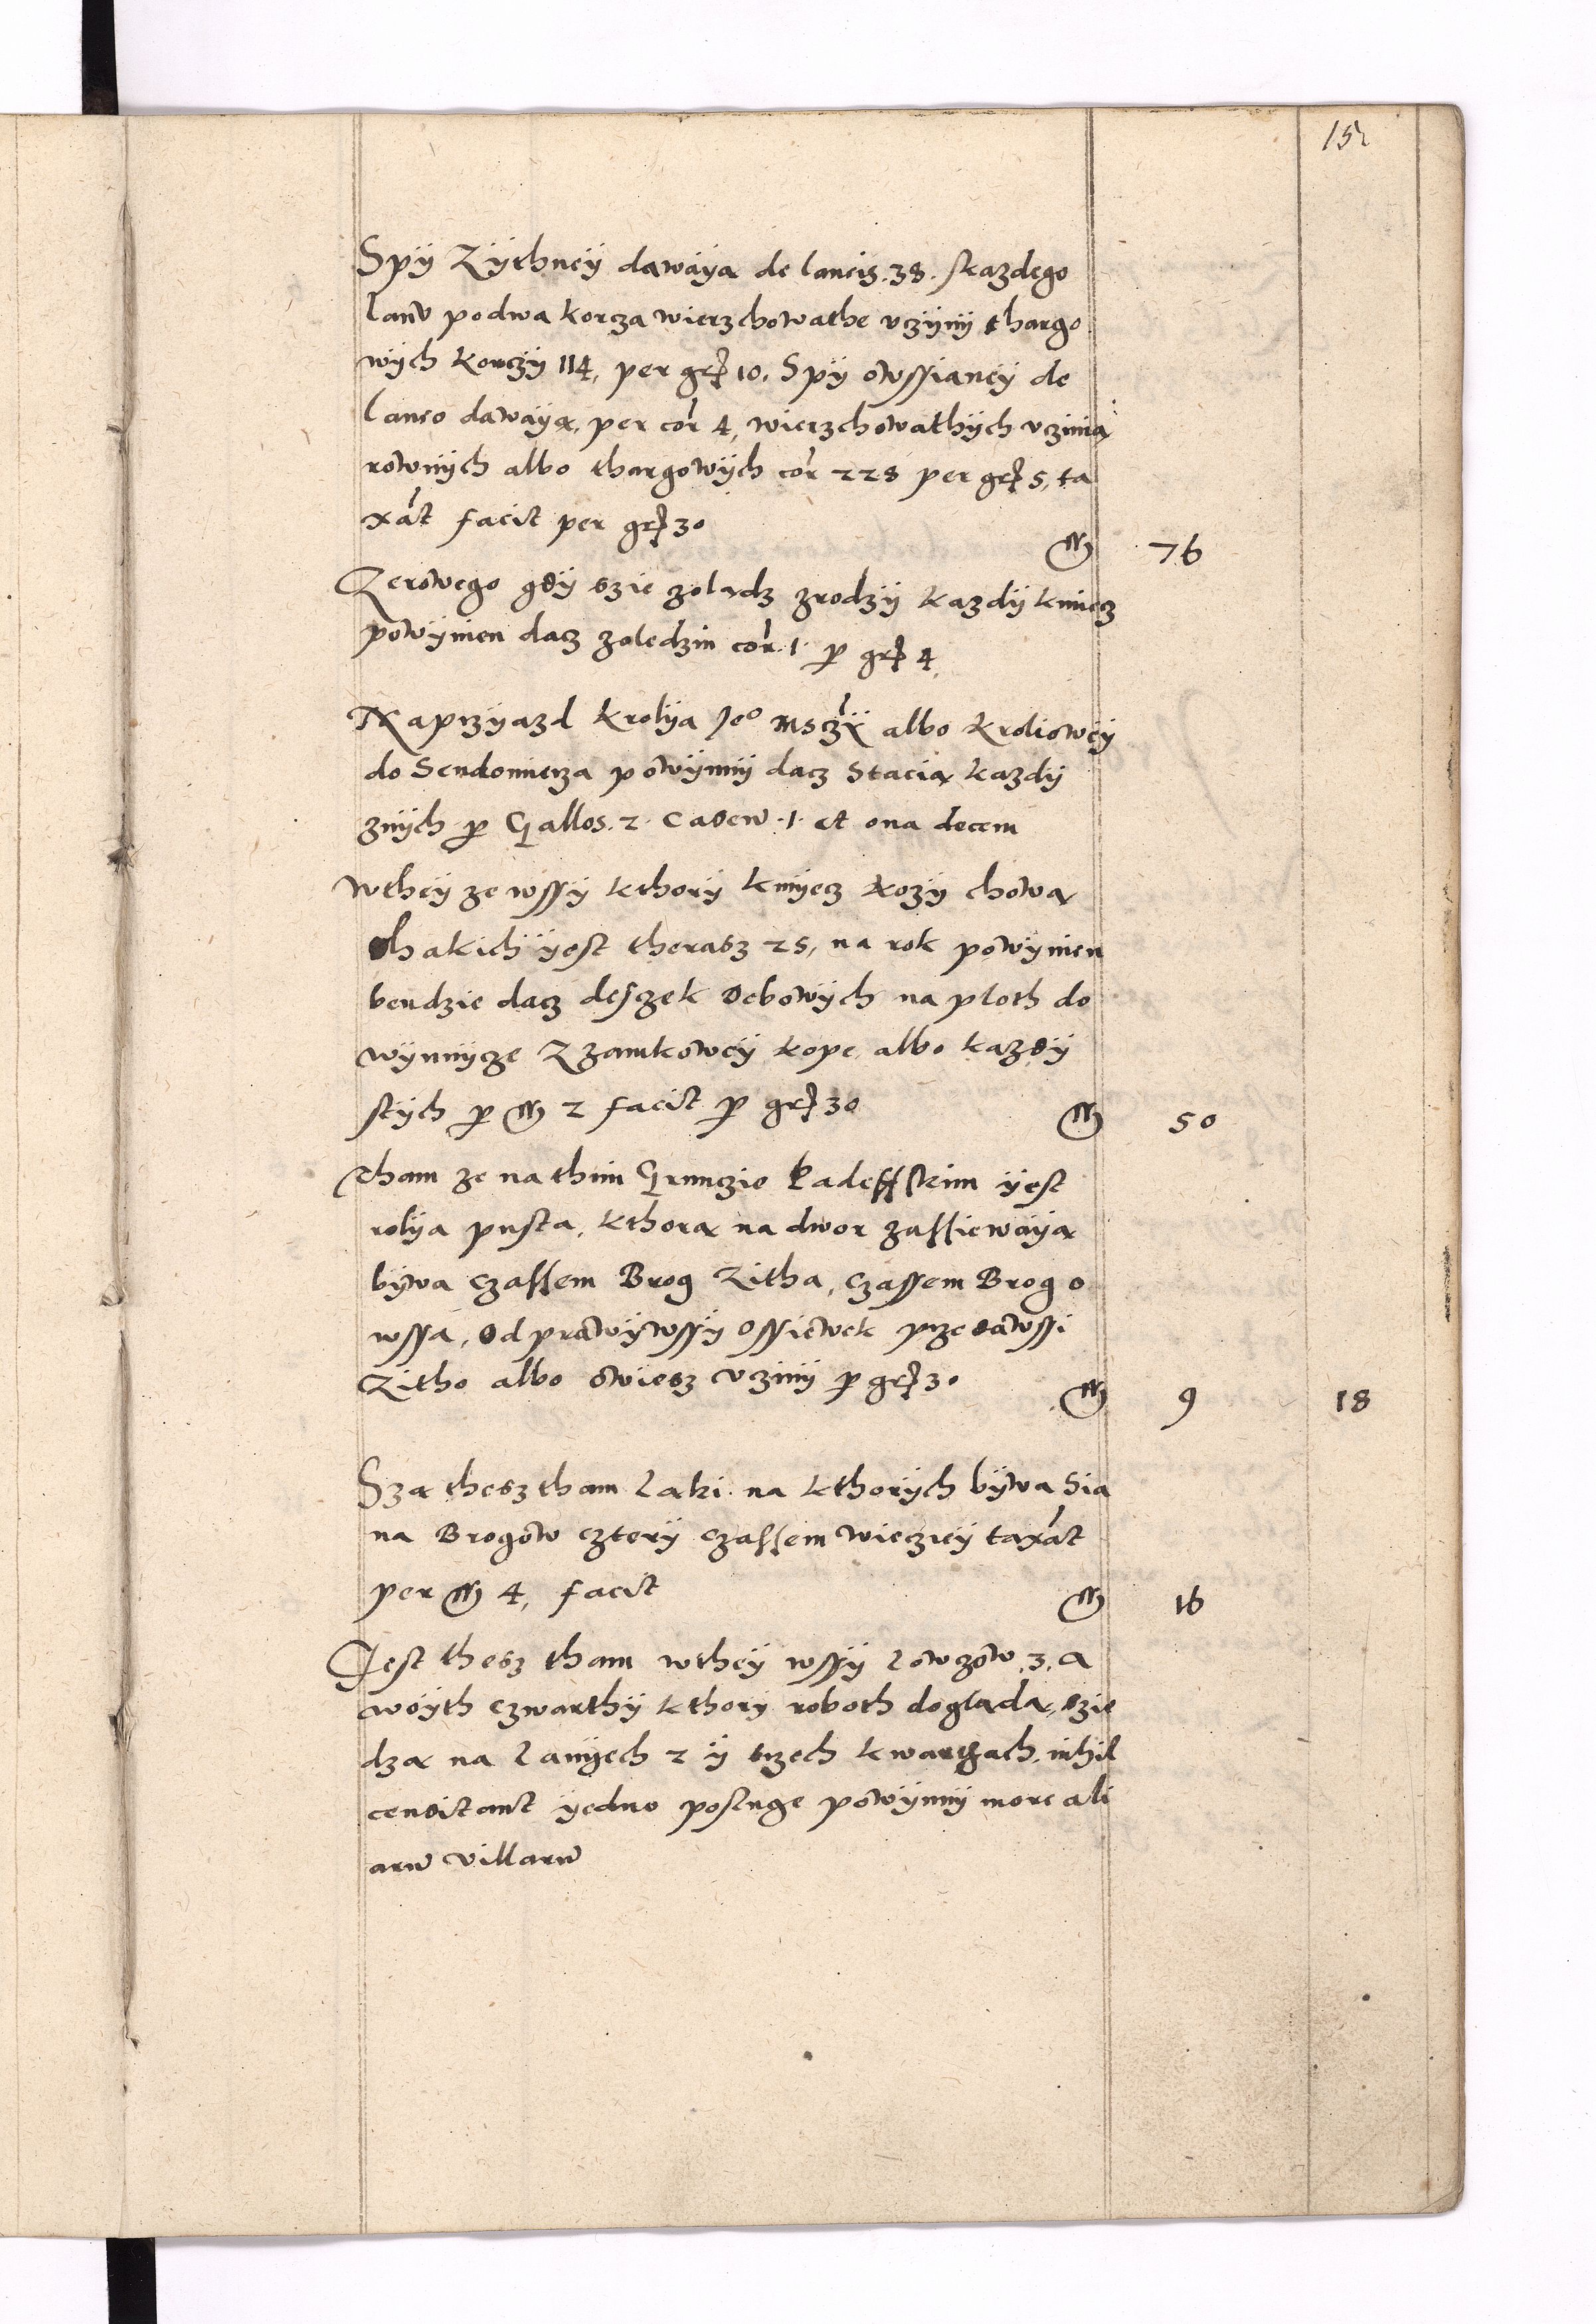 15
Spÿ Zÿthneÿ dawáÿą de laneis. 38. skazdego
lanu podwa korcza wierzchowathe vczÿnÿ thargo
wÿch korczÿ 114, per gr 10. Spÿ owssianeÿ de
laneo dawáÿą, per cor 4, wierzchowathÿch vczinią
rownÿch albo thargowÿch cor 228 per gr 5, ta
xat facit per gr 30
m 76
Zerowego gdÿ szie zoladz zrodzÿ kazdÿ kmiecz
powÿnien dacz zoledzin cor. 1. p gr 4.
Na przÿazd krolÿa Jeo Msczÿ albo krolioweÿ
do Sendomierza powÿnnÿ dacz Stacią kazdÿ
znÿch p Gallos. 2. Caseu. 1. et oua decem
Wtheÿ ze wssÿ kthorÿ kmÿecz kozÿ chowa
thakich ÿest therasz 25, na rok powÿnien
bendzie dacz desczek debowÿch na ploth do
wÿnnÿcze Zzamkoweÿ kope albo kazdÿ
stÿch p m 2 facit p gr 30
m 50
Tham ze na thim Grunczie Radeffskim ÿest
rolÿa pusta, kthorą na dwor zassiewáÿą
bÿwa czassem Brog Zitha, czassem Brog o
wssa, Odprawÿwssÿ Ossiewek przedawssi
Zitho albo owiesz vczinÿ p gr 30
m 9 18
Szą thesz tham Laki na kthorÿch bÿwa Sia
na Brogow cztery czassem wieczieÿ taxat
per m 4, facit
m 16
Jest thesz tham wtheÿ wssÿ Lowczow 3, a
woÿth czwarthÿ kthorÿ roboth dogląda, szie
dzą na Lanÿech 2 ÿ trzech kwartach, nihil
censitant ÿedno posluge powÿnnÿ more ali
aru villaru